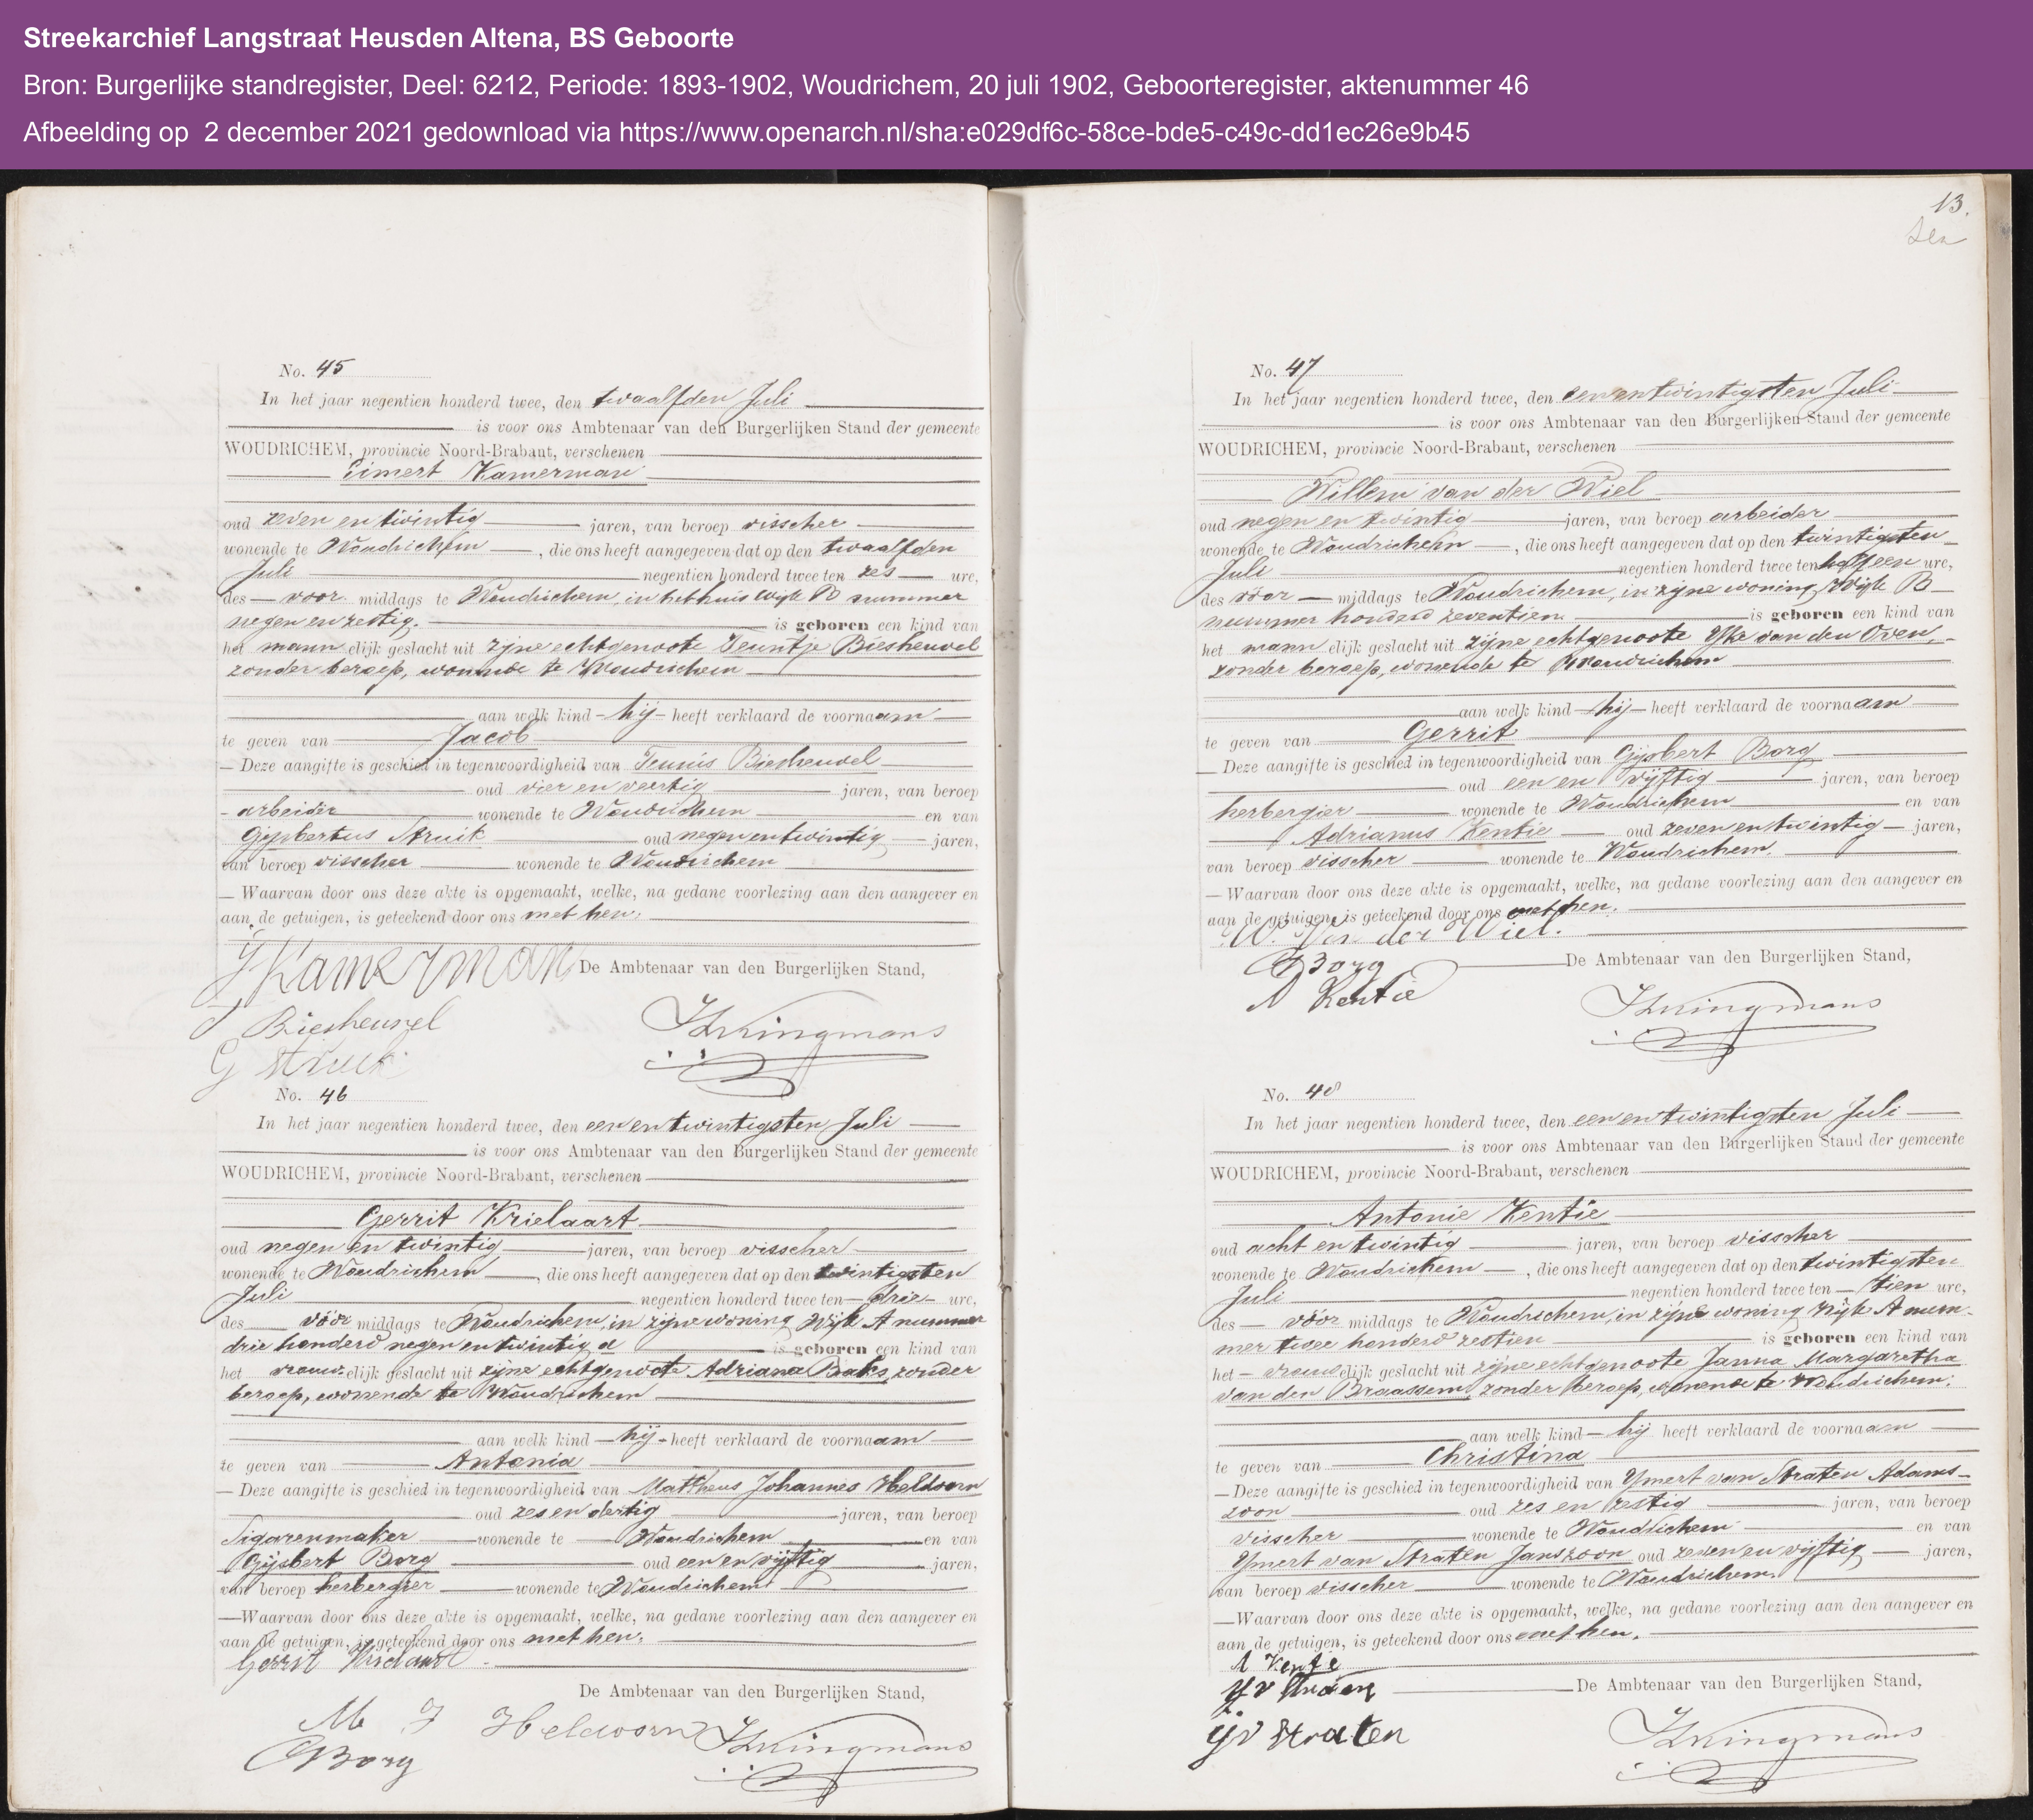 Streekarchief Langstraat Heusden Altena, BS Geboorte
Bron: Burgerlijke standregister, Deel: 6212, Periode: 1893-1902, Woudrichem, 20 juli 1902, Geboorteregister, aktenummer 46
Afbeelding op 2 december 2021 gedownload via https://www.openarch.nl/sha:e029df6c-58ce-bde5-c49c-dd1ec26e9b45
No. 45
In het jaar negentien honderd twee, den twaalfden Juli
is voor ons Ambtenaar van den Burgerlijken Stand der gemeente
WOUDRICHEM, provincie Noord-Brabant, verschenen
Eimert Kamerman
oud zeven en twintig jaren, van beroep visscher
wonende te Woudrichem, die ons heeft aangegeven dat op den twaalfden
Juli negentien honderd twee ten zes ure,
des voor middags te Woudrichem, in het huis wijk B nummer
negen en zestig. is geboren een kind van
het mannelijk geslacht uit zijne echtgenoote Teuntje Biesheuvel
zonder beroep, wonende te Woudrichem
aan welk kind hij heeft verklaard de voornaam
te geven van Jacob
Deze aangifte is geschied in tegenwoordigheid van Teunis Biesheuvel
oud vier en veertig jaren, van beroep
arbeider wonende te Woudrichem en van
Gijsbertus Struik oud negen en twintig jaren,
van beroep visscher wonende te Woudrichem
Waarvan door ons deze akte is opgemaakt, welke, na gedane voorlezing aan den aangever en
aan de getuigen, is geteekend door ons met hen.
Kamerman
De Ambtenaar van den Burgerlijken Stand,
Biesheuvel
Kingmans
G Struik
No. 46
In het jaar negentien honderd twee, den een en twintigsten Juli
is voor ons Ambtenaar van den Burgerlijken Stand der gemeente
WOUDRICHEM, provincie Noord-Brabant, verschenen
Gerrit Krielaart
oud negen en twintig jaren, van beroep visscher
wonende te Woudrichem, die ons heeft aangegeven dat op den twintigsten
Juli negentien honderd twee ten drie ure,
des vóór middags te Woudrichem, in zijne woning Wijk A nummer
drie honderd negen en twintig a is geboren een kind van
het vrouwelijk geslacht uit zijne echtgenoote Adriana Baks, zonder
beroep, wonende te Woudrichem
aan welk kind hij heeft verklaard de voornaam
te geven van Antonia
Deze aangifte is geschied in tegenwoordigheid van Mattheus Johannes Heldoorn
oud zes en dertig jaren, van beroep
Sigarenmaker wonende te Woudrichem en van
Gijsbert Borg oud een en vijftig jaren,
van beroep herbergier wonende te Woudrichem
Waarvan door ons deze akte is opgemaakt, welke, na gedane voorlezing aan den aangever en
aan de getuigen, is geteekend door ons met hen.
Gerrit Krielaart
De Ambtenaar van den Burgerlijken Stand,
M J Heldoorn
Kingmans
G Borg
13.
No. 47
In het jaar negentien honderd twee, den een en twintigsten Juli
is voor ons Ambtenaar van den Burgerlijken Stand der gemeente
WOUDRICHEM, provincie Noord-Brabant, verschenen
Willem van der Wiel
oud negen en twintig jaren, van beroep arbeider
wonende te Woudrichem, die ons heeft aangegeven dat op den twintigsten
Juli negentien honderd twee ten half een ure,
des vóór middags te Woudrichem, in zijne woning, Wijk B
nummer honderd zeventien is geboren een kind van
het mannelijk geslacht uit zijne echtgenoote Yke van den Oven,
zonder beroep, wonende te Woudrichem
aan welk kind hij heeft verklaard de voornaam
te geven van Gerrit
Deze aangifte is geschied in tegenwoordigheid van Gijsbert Borg
oud een en vijftig jaren, van beroep
herbergier wonende te Woudrichem en van
Adrianus Kentie oud zeven en twintig jaren,
van beroep visscher wonende te Woudrichem.
Waarvan door ons deze akte is opgemaakt, welke, na gedane voorlezing aan den aangever en
aan de getuigen, is geteekend door ons met hen.
W. Van der Wiel.
G Borg
De Ambtenaar van den Burgerlijken Stand,
A Kentie
Kingmans
No. 48
In het jaar negentien honderd twee, den een en twintigsten Juli
is voor ons Ambtenaar van den Burgerlijken Stand der gemeente
WOUDRICHEM, provincie Noord-Brabant, verschenen
Antonie Kentie
oud acht en twintig jaren, van beroep visscher
wonende te Woudrichem, die ons heeft aangegeven dat op den twintigsten
Juli negentien honderd twee ten tien ure,
des vóór middags te Woudrichem, in zijne woning Wijk A num-
mer twee honderd zestien is geboren een kind van
het vrouwelijk geslacht uit zijne echtgenoote Janna Margaretha
van den Braassem, zonder beroep, wonende te Woudrichem.
aan welk kind hij heeft verklaard de voornaam
te geven van Christina
Deze aangifte is geschied in tegenwoordigheid van Ymert van Straten Adams-
zoon oud zes en zestig jaren, van beroep
visscher wonende te Woudrichem en van
Ymert van Straten Janszoon oud zeven en vijftig jaren,
van beroep visscher wonende te Woudrichem.
Waarvan door ons deze akte is opgemaakt, welke, na gedane voorlezing aan den aangever en
aan de getuigen, is geteekend door ons met hen.
A Kentie
De Ambtenaar van den Burgerlijken Stand,
IJ v Straten
Kingmans